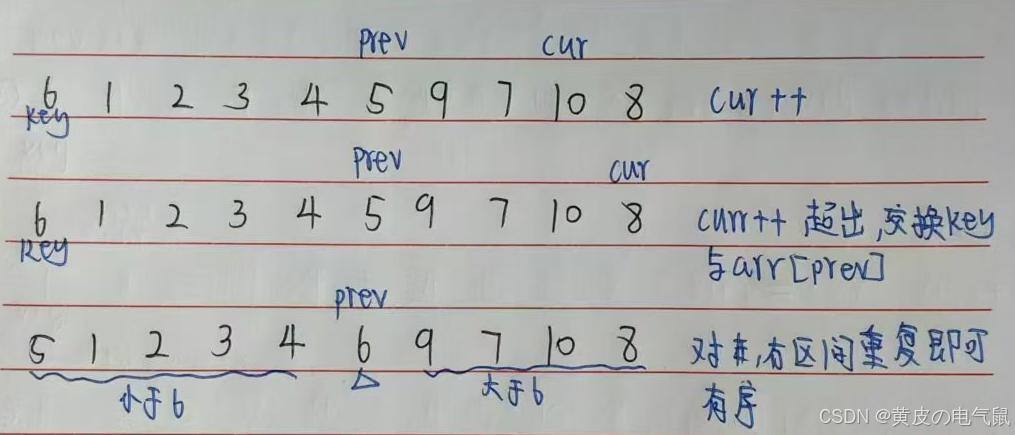 prev cur
6 1 2 3 4 5 9 7 10 8 cur++
key
prev
cur
6 1 2 3 4 5 9 7 10 8 curr++ 超出,交换key
key 与arr[prev]
prev
5 1 2 3 4 6 9 7 10 8 对 有区间重复即可
小于6 大于6 有序
CSDN @黄皮の电气鼠